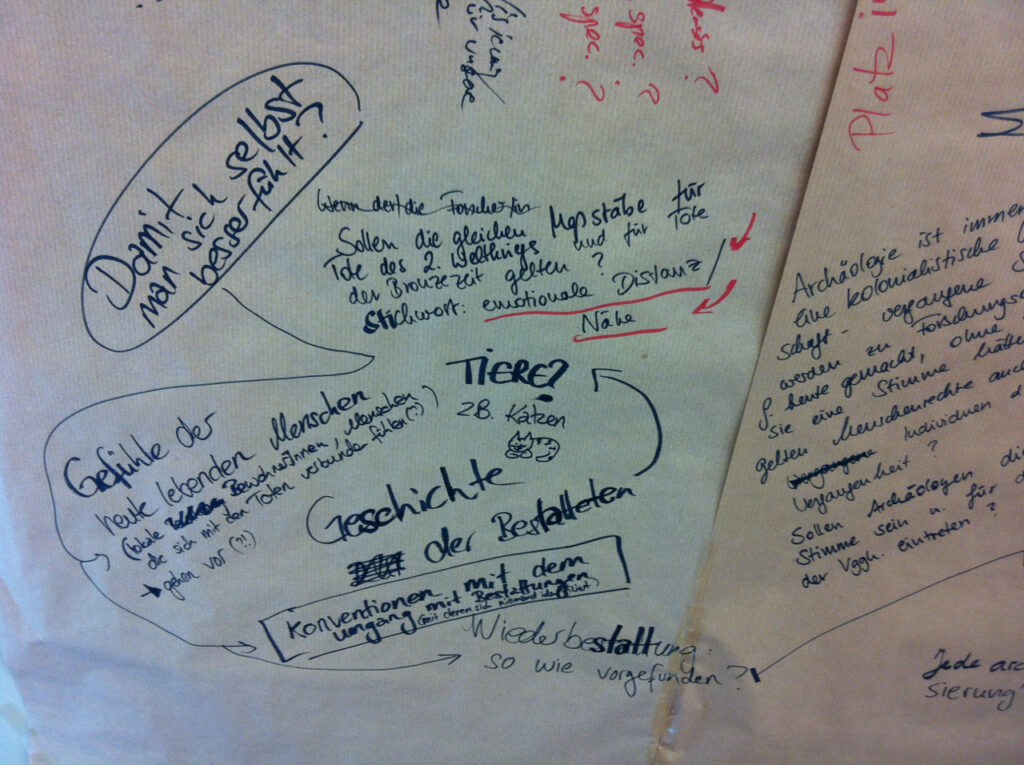 spec. ?
spec. ?
Platz i
Damit
man sich selbst
besser fühlt?
Wenn dert die Forscher/in
Sollen die gleichen Maßstäbe für
Tote des 2. Weltkriegs und für Tote
der Bronzezeit gelten ?
Stichwort: emotionale Distanz /
Nähe
TIERE?
zB. Katzen
Gefühle der
heute lebenden Menschen
(lokale BewohnerInnen, Menschen
die sich mit den Toten verbunden fühlen(?))
gehen vor (?!)
Geschichte
der Bestatteten
Konventionen mit dem
umgang mit Bestattungen
(mit denen sich niemand identifiziert)
Wiederbestattung:
so wie vorgefunden ?
M
Archäologie ist immer
eine kolonialistische
schaft - vergangene
werden zu Forschungs
f. heute gemacht, ohne
sie eine Stimme hätte
gelten Menschenrechte auch
Individuen d
Vergangenheit ?
Sollen Archäologen die
Stimme sein u. für d
der Vggh. eintreten ?
Jede arc
sierung